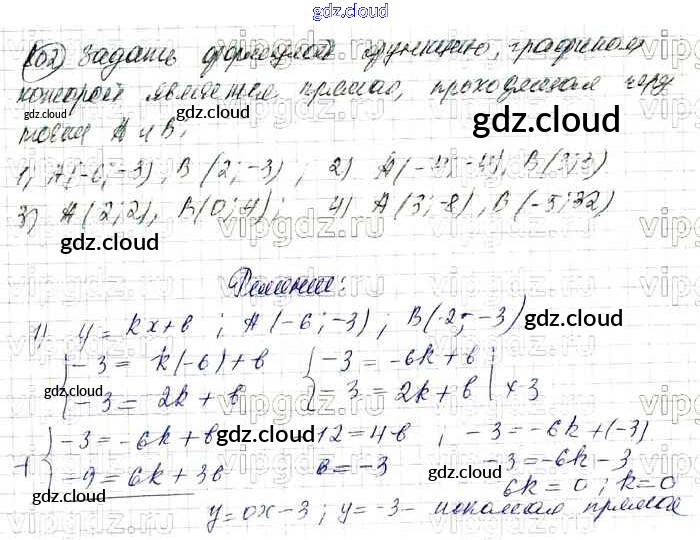 gdz.cloud
gdz.cloud
102) Задать формулой функцию, графиком
которой является прямая, проходящая через
точки А и В:
gdz.cloud
gdz.cloud
1) A(-6;-3), B(2;-3); 2) A(-4;-4), B(3;3)
3) A(2;2), B(0;4); 4) A(3;-8), B(-5;32)
gdz.cloud
gdz.cloud
Решение:
1) y = kx+b; A(-6;-3); B(2;-3)
gdz.cloud
{-3 = k(-6)+b {-3 = -6k+b;
{-3 = 2k+b {-3 = 2k+b | ×3
gdz.cloud
gdz.cloud
{-3 = -6k+b gdz.cloud -12 = 4b; -3 = -6k+(-3)
{-9 = 6k+3b b = -3 -3 = -6k-3
gdz.cloud
gdz.cloud
6k = 0; k = 0
y = 0x-3; y = -3 - искомая прямая